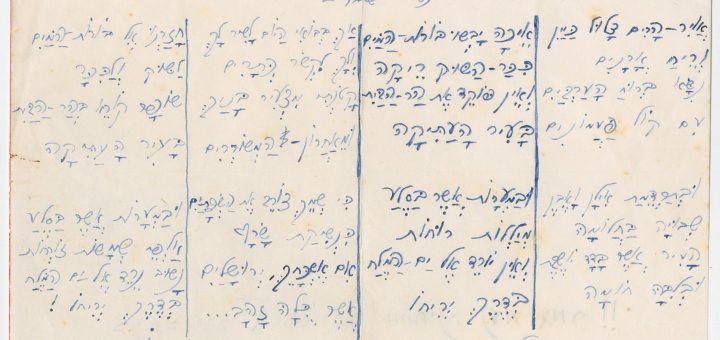 אֲוִיר-הָרִים צָלוּל כַּיַּיִן
וְרֵיחַ אֳרָנִים
נִשָּׂא בְּרוּחַ הָעַרְבַּיִם
עִם קוֹל פַּעֲמוֹנִים
וּבְתַרְדֵּמַת אִילָן וָאֶבֶן
שְׁבוּיָה בַּחֲלוֹמָהּ
הָעִיר אֲשֶׁר בָּדָד יוֹשֶׁבֶת
וּבְלִבָּהּ חוֹמָה
אֵיכָה יָבְשׁוּ בּוֹרוֹת-הַמַּיִם
כִּכַּר-הַשּׁוּק רֵיקָה
וְאֵין פּוֹקֵד אֶת הַר-הַבַּיִת
בָּעִיר הָעַתִּיקָה
וּבַמְּעָרוֹת אֲשֶׁר בַּסֶּלַע
מְיַלְּלוֹת רוּחוֹת
וְאֵין יוֹרֵד אֶל יַם-הַמֶּלַח
בְּדֶרֶךְ יְרִיחוֹ
אַךְ בְּבוֹאִי הַיּוֹם לָשִׁיר לָךְ
וְלָךְ לִקְשֹׁר כְּתָרִים
קָטֹנְתִּי מִצְּעִיר בָּנַיִךְ
וּמֵאַחֲרוֹן-הַמְשׁוֹרְרִים
כִּי שְׁמֵךְ צוֹרֵב אֶת הַשְּׂפָתַיִם
כִּנְשִׁיקַת שָׂרָף
אִם אֶשְׁכָּחֵךְ, יְרוּשָׁלַיִם
אֲשֶׁר כֻּלָּהּ זָהָב...
חָזַרְנוּ אֶל בּוֹרוֹת-הַמַּיִם
לַשּׁוּק וְלַכִּכָּר
שׁוֹפָר קוֹרֵא בְּהַר-הַבַּיִת
בָּעִיר הָעַתִּיקָה
וּבַמְּעָרוֹת אֲשֶׁר בַּסֶּלַע
אַלְפֵי שְׁמָשׁוֹת זוֹרְחוֹת
נָשׁוּב נֵרֵד אֶל יַם הַמֶּלַח
בְּדֶרֶךְ יְרִיחוֹ !